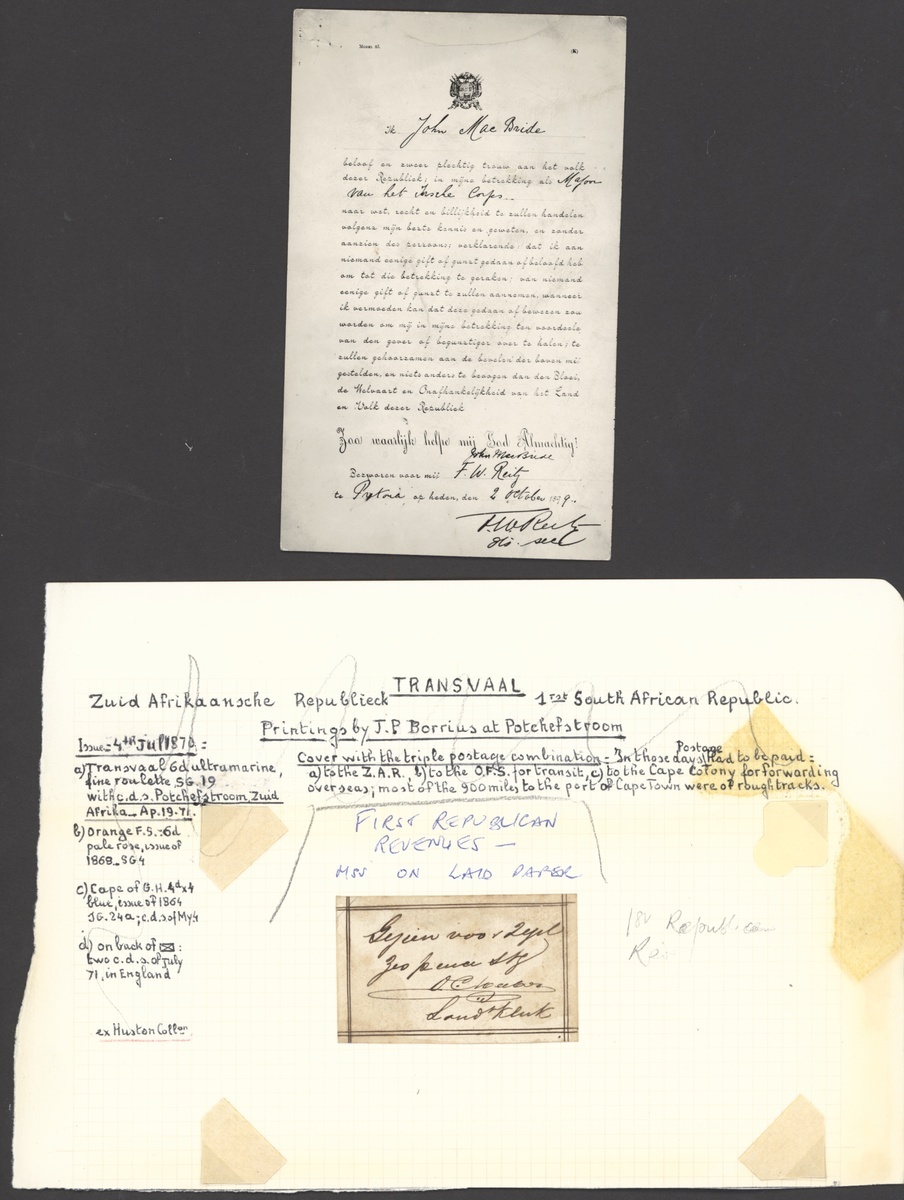 MODEL 43.
(K)
Ik John Mac Bride
beloof en zweer plechtig trouw aan het volk
dezer Republiek; in mijne betrekking als Major
van het Irsche Corps
naar wet, recht en billijkheid te zullen handelen
volgens mijn beste kennis en geweten, en zonder
aanzien des persoons; verklarende dat ik aan
niemand eenige gift of gunst gedaan of beloofd heb
om tot die betrekking te geraken; van niemand
eenige gift of gunst te zullen aannemen, wanneer
ik vermoeden kan dat deze gedaan of bewezen zou
worden om mij in mijne betrekking ten voordeele
van den gever of begunstiger over te halen; te
zullen gehoorzamen aan de bevelen der boven mij
gestelden, en niets anders te beoogen dan den Bloei,
de Welvaart en Onafhankelijkheid van het Land
en Volk dezer Republiek
Zoo waarlijk helpe mij God Almachtig!
John MacBride
Bezworen voor mij F. W. Reitz
te Pretoria op heden, den 2 October 1899.
F.W. Reitz
TRANSVAAL
Zuid Afrikaansche Republieck 1rst South African Republic.
Printings by J.P. Borrius at Potchefstroom
Issue - 4th Jul 1870 =
a) Transvaal 6d ultramarine,
fine roulette SG.19
with c.d.s. Potchefstroom, Zuid
Afrika - Ap.19.71.
b) Orange F.S. :6d
pale rose, issue of
1868 - SG4
c) Cape of G.H. 4d x 4
blue, issue of 1864
SG.24a; c.d.s of My4
d) on back of ✉:
two c.d.s. of July
71, in England
ex Huston Collon
Cover with the triple postage combination - In those days Postage had to be paid :
a) to the Z.A.R., b) to the O.F.S. for transit, c) to the Cape Colony for forwarding
overseas; most of the 900 miles to the port of Cape Town were of rough tracks.
FIRST REPUBLICAN
REVENUES -
MSS ON LAID PAPER
1st Republican
Gezien voor Zegel
Zes pence Stg
Landds Klerk